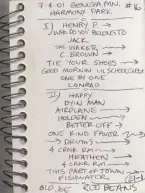 7-4-01 BENZIE A MAN. #16
HARMONY PARK
I) HENRY P. →
WHO DO YOU BELONG TO
JACK
THE WAKER →
C. BROWN →
TIE YOUR SHOES →
GOOD MORNIN LIL SCHOOL GIRL →
ONE BY ONE
CONRAD
II) HAPPY
DYIN MAN
AIRPLANE →
HOLDEN →
BETTER OFF →
ONE KIND FAVOR →
> DRUMS →
4 CRNR RM →
HEATHEN →
4 CRNR RM →
THIS PART OF TOWN →
FISHWATER
OLD JOE RED BEANS